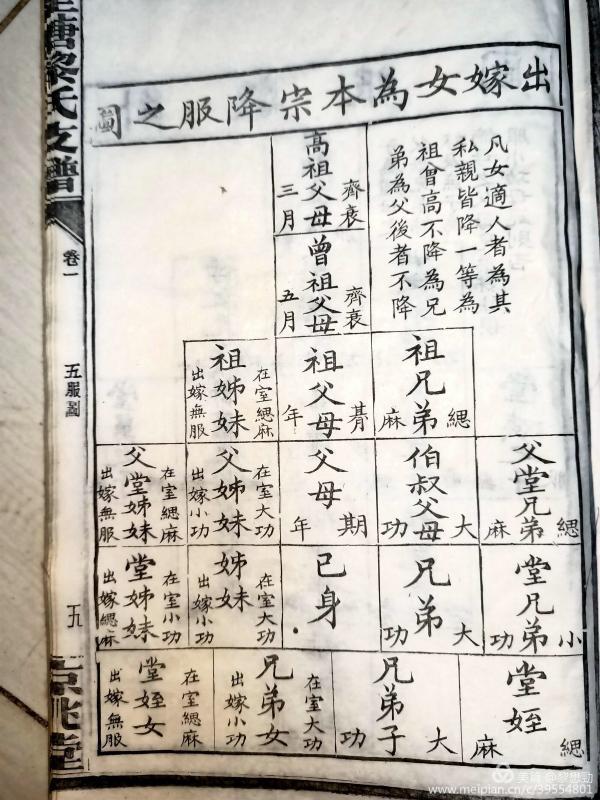 出嫁女為本宗降服之圖
凡女適人者為其
私親皆降一等為
祖曾高不降為兄
弟為父後者不降
高祖父母
齊衰
三月
曾祖父母
齊衰
五月
祖兄弟
緦麻
祖父母
朞年
祖姊妹
在室緦麻
出嫁無服
父堂兄弟
緦麻
伯叔父母
大功
父母
期年
父姊妹
在室大功
出嫁小功
父堂姊妹
在室緦麻
出嫁無服
堂兄弟
小功
兄弟
大功
己身
姊妹
在室大功
出嫁小功
堂姊妹
在室小功
出嫁緦麻
堂姪
緦麻
兄弟子
大功
兄弟女
在室大功
出嫁小功
堂姪女
在室緦麻
出嫁無服
塘黎氏支譜
卷一
五服圖
五
京兆堂
美篇 @黎懋勁
www.meipian.cn/c/39554801